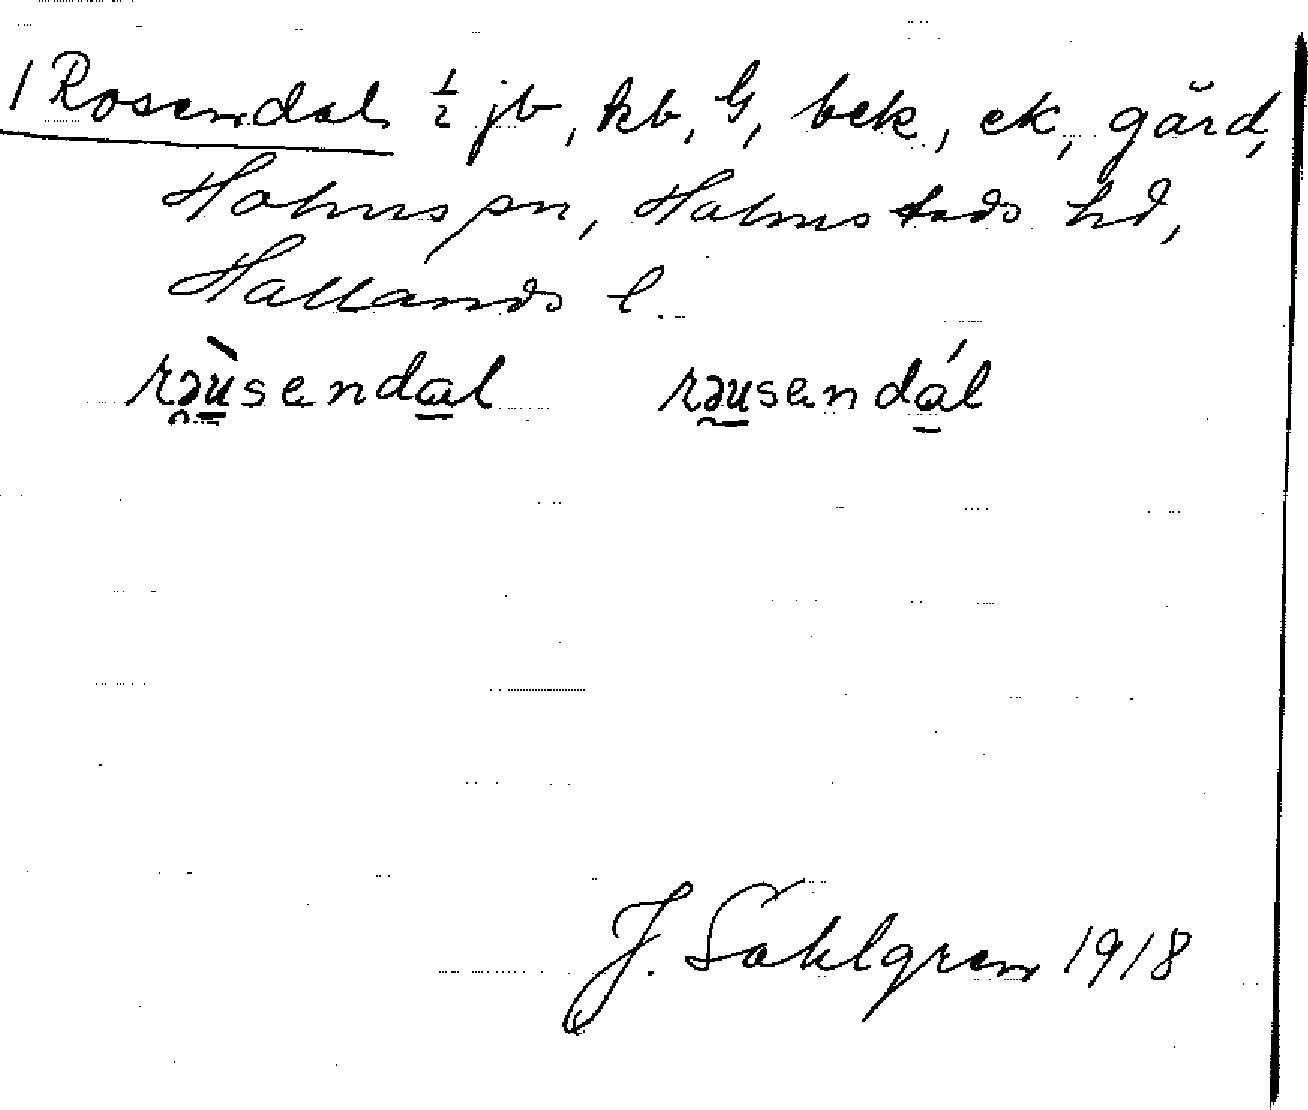 1 Rosendal ½ jb, kb, G, bek, ek, gård,
Holms sn, Halmstads hd,
Hallands l.
rəùsendal rəusendál
J. Sahlgren 1918